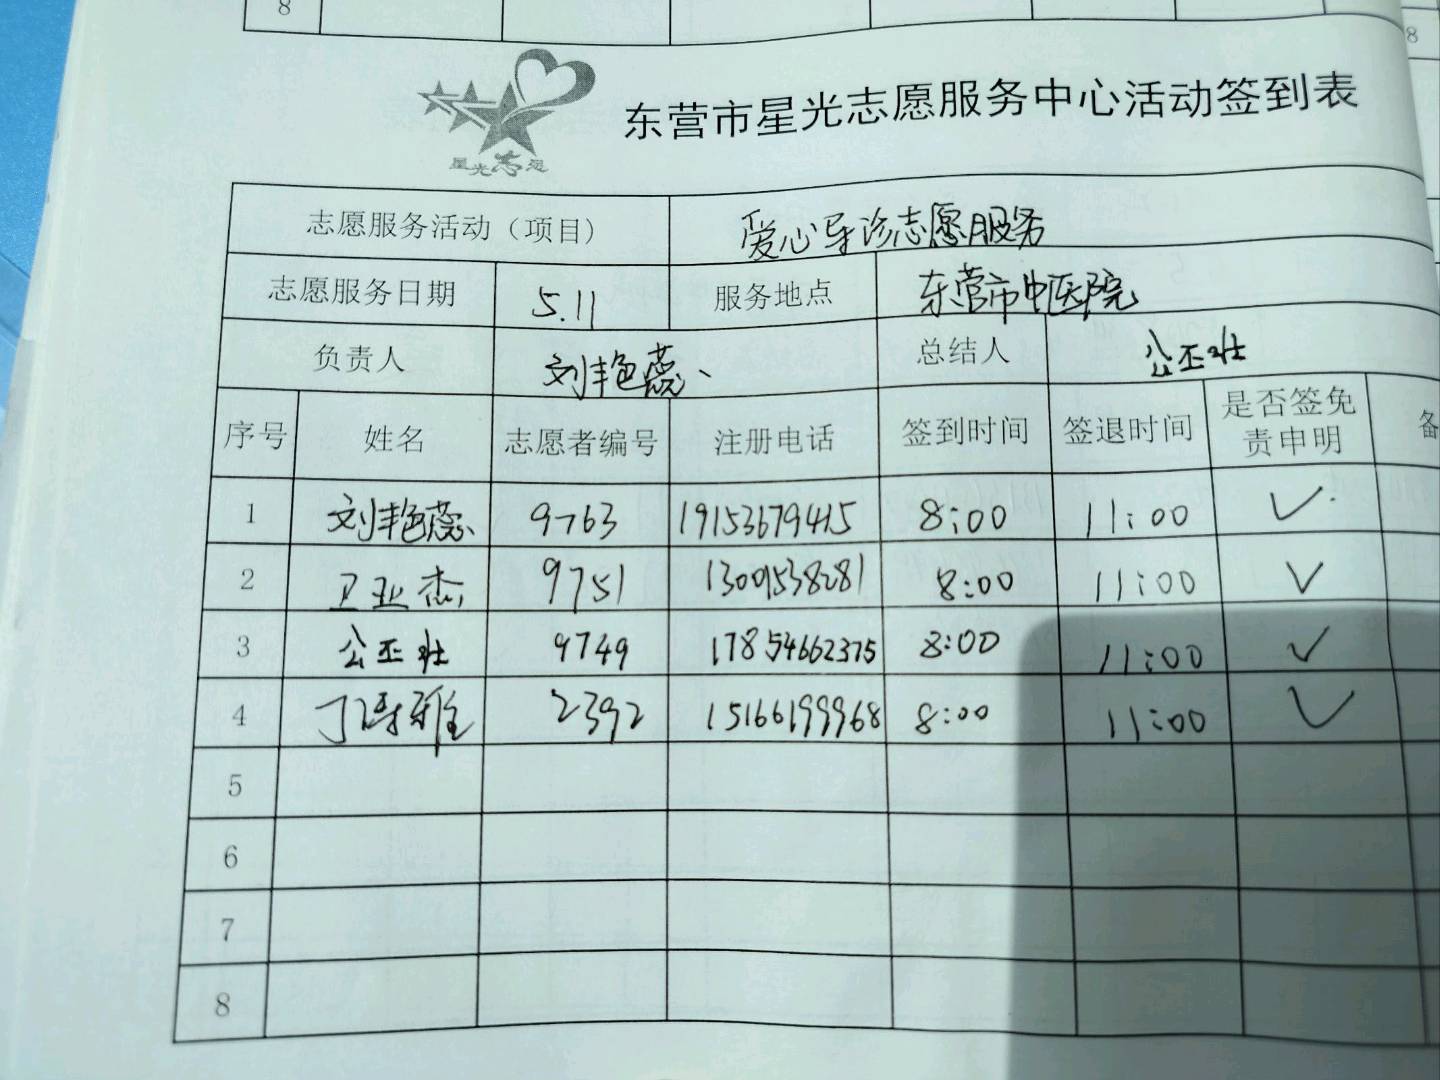 8
8
星光志愿
东营市星光志愿服务中心活动签到表
志愿服务活动（项目） 爱心导诊志愿服务
志愿服务日期 5.11 服务地点 东营市中医院
负责人 刘艳蕊 总结人 公丕壮
序号 姓名 志愿者编号 注册电话 签到时间 签退时间 是否签免责申明 备
1 刘艳蕊 9763 19153679415 8:00 11:00 ✓
2 卫亚杰 9751 13001538281 8:00 11:00 ✓
3 公丕壮 9749 17854662375 8:00 11:00 ✓
4 丁雅 2392 15166199968 8:00 11:00 ✓
5
6
7
8